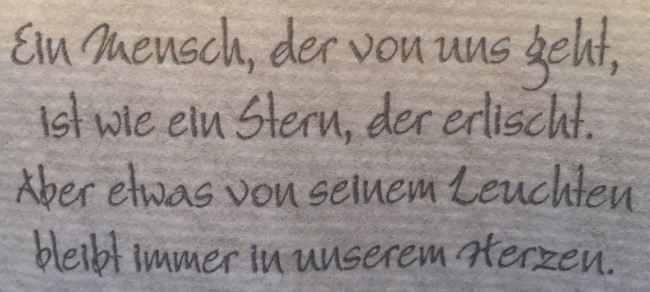 Ein Mensch, der von uns geht,
ist wie ein Stern, der erlischt.
Aber etwas von seinem Leuchten
bleibt immer in unserem Herzen.